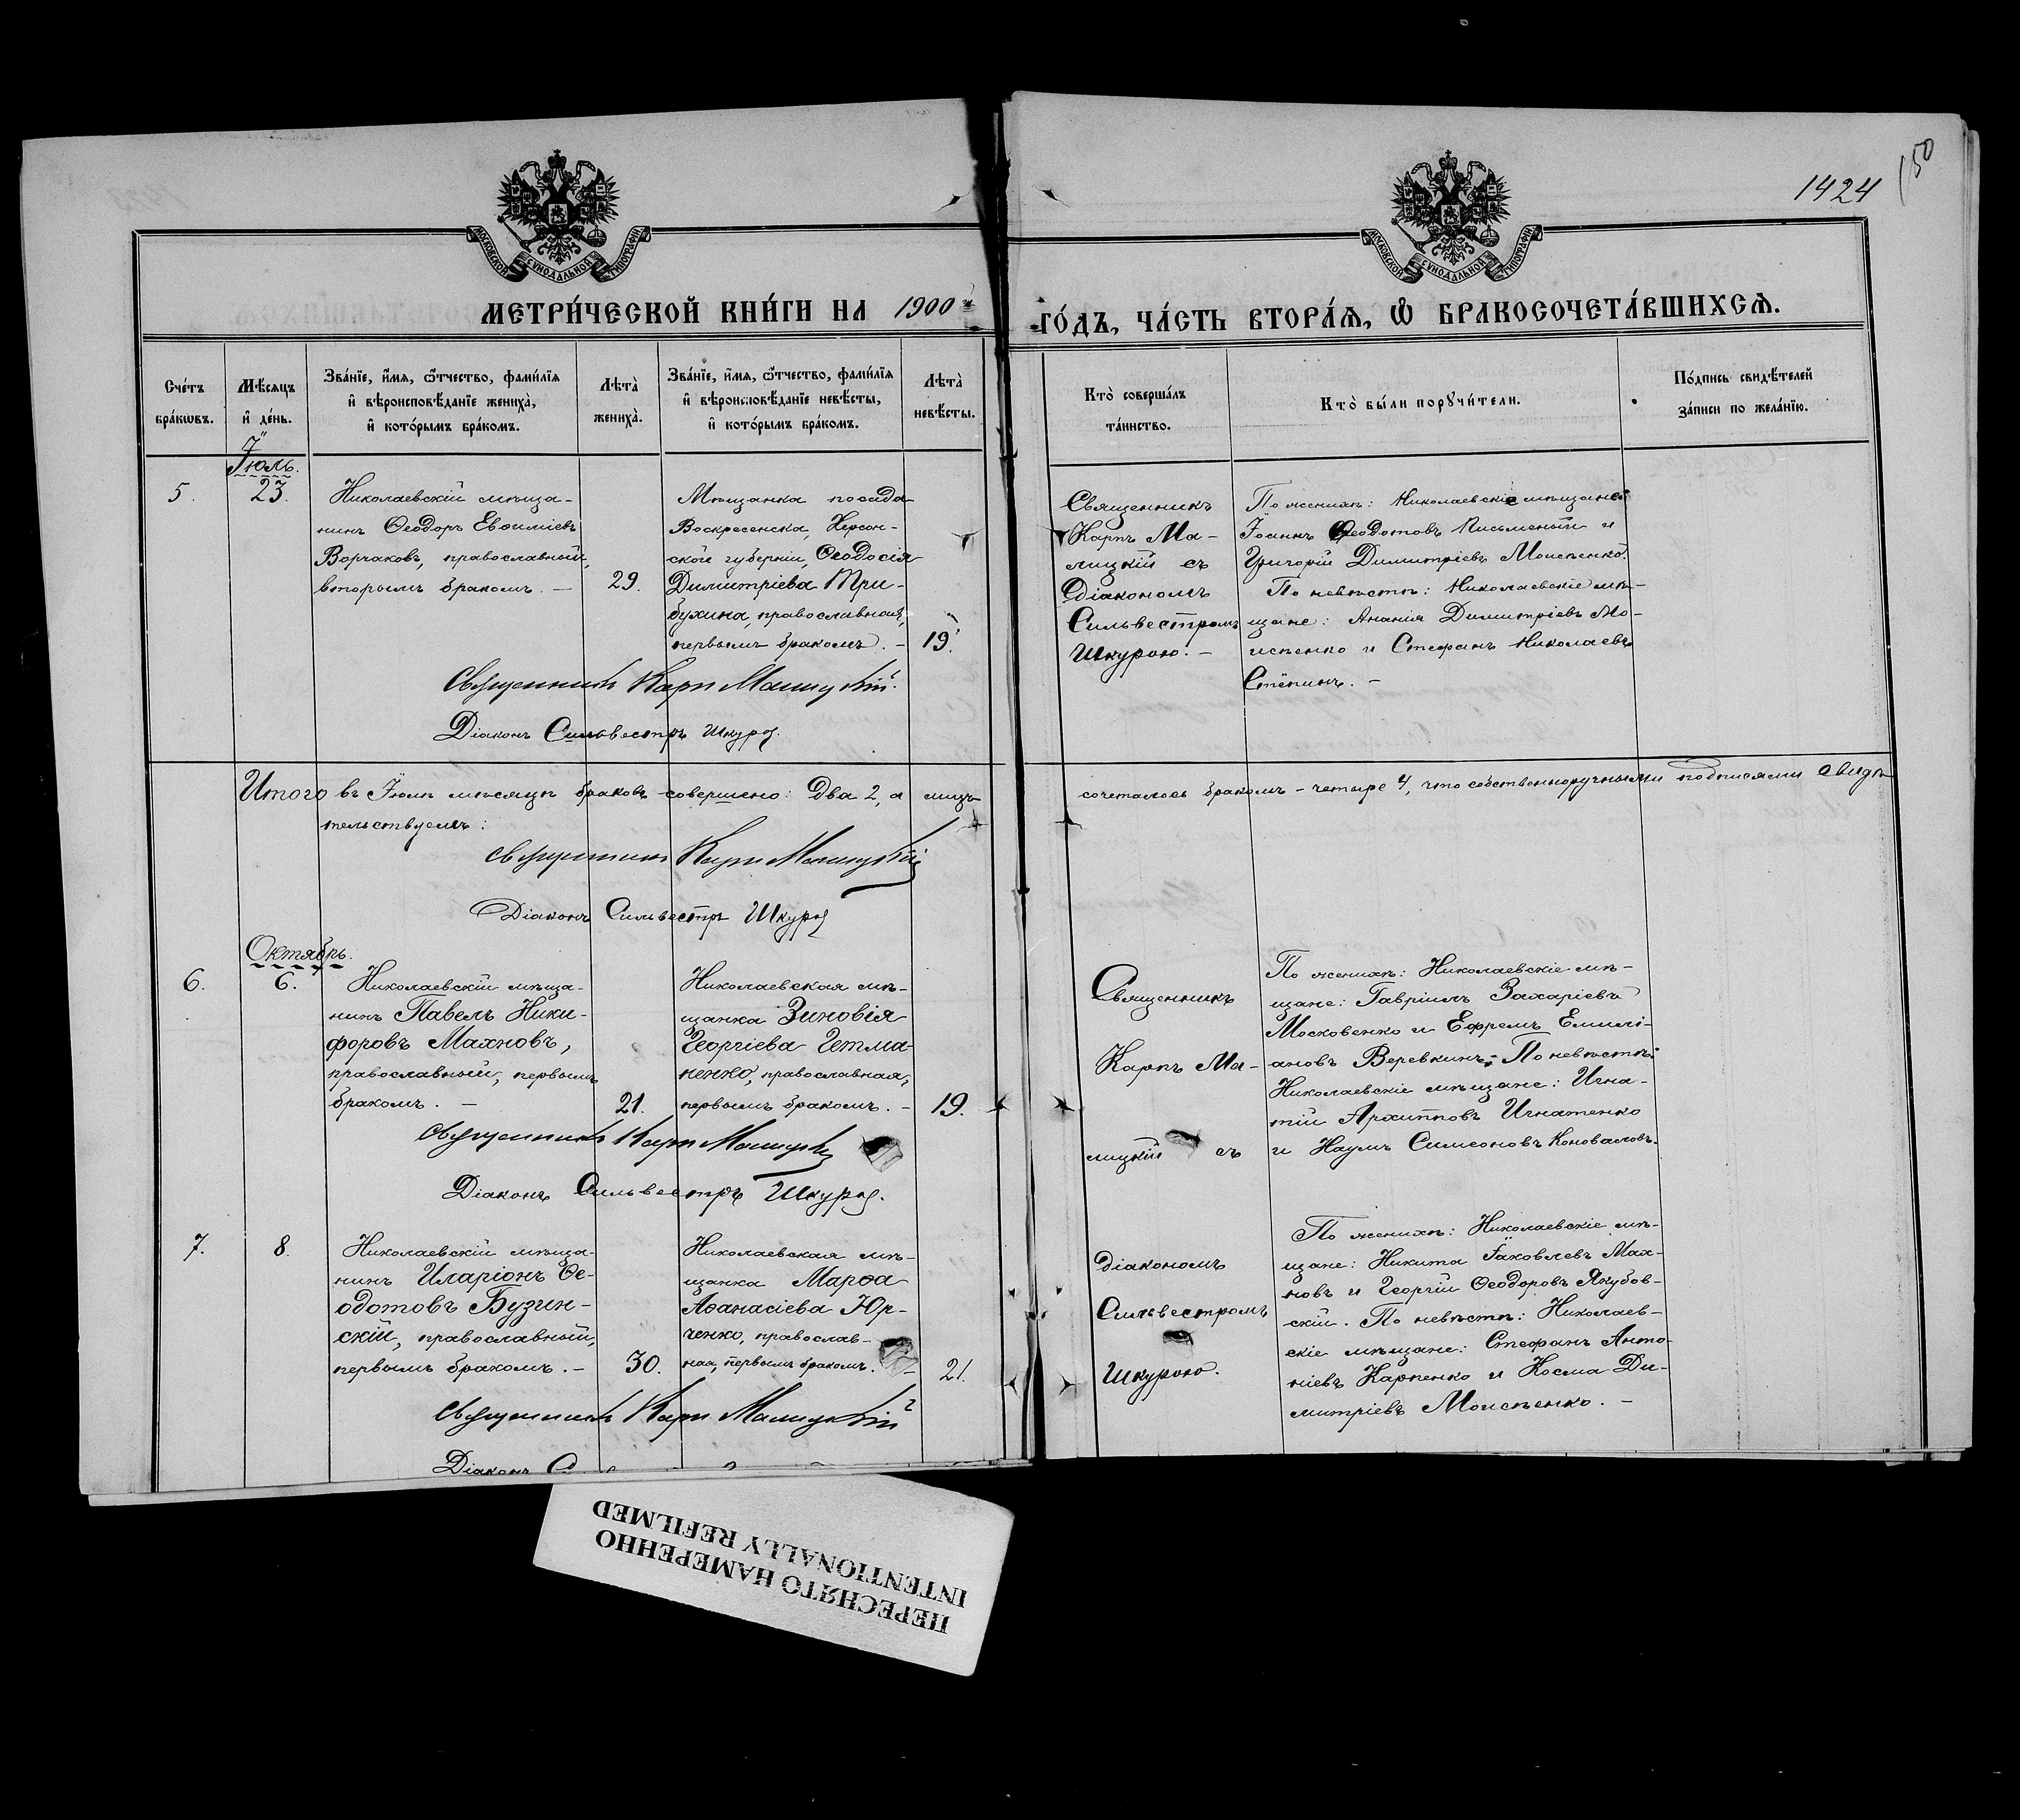 1424
150
МОСКОВСКОЙ СѴНОДАЛЬНОЙ ТИПОГРАФІИ
МОСКОВСКОЙ СѴНОДАЛЬНОЙ ТИПОГРАФІИ
МЕТРИ́ЧЕСКОЙ КНИ́ГИ НА 1900й
ГО́ДЪ, ЧА́СТЬ ВТОРА́Ѧ, Ѡ БРАКОСОЧЕТА́ВШИХСѦ.
Сче́тъ бра́кѡвъ.
Мѣ́сѧцъ и҆ де́нь.
Зва́нїе, и҆́мѧ, ѻ҆́тчество, фами́лїѧ и҆ вѣроисповѣ́данїе жениха̀, и҆ кото́рымъ бра́комъ.
Лѣта̀ жениха̀.
Зва́нїе, и҆́мѧ, ѻ҆́тчество, фами́лїѧ и҆ вѣроисповѣ́данїе невѣ́сты, и҆ кото́рымъ бра́комъ.
Лѣта̀ невѣ́сты.
Кто̀ соверша́лъ та́инство.
Кто̀ бы́ли порꙋчи́тели.
По́дпись свидѣ́телей за́писи по жела́нїю.
Іюль.
5.
23.
Николаевскій мѣща-
нинъ Ѳеодоръ Евѳиміевъ
Ворчаковъ, православный,
вторымъ бракомъ. —
29.
Мѣщанка посада
Воскресенска, Херсон-
ской губерніи, Ѳеодосія
Димитріева Три-
бухина, православная,
первымъ бракомъ. —
19.
Священникъ
Карпъ Ма-
лицкій съ
Діакономъ
Сильвестромъ
Шкурою. —
По женихѣ: Николаевскіе мѣщане:
Іоаннъ Ѳеодотовъ Письменый и
Григорій Димитріевъ Моисеенко.
По невѣстѣ: Николаевскіе мѣ-
щане: Ананія Димитріевъ Мо-
исеенко и Стефанъ Николаевъ
Стёпинъ. —
Священникъ Карпъ Малицкій.
Діаконъ Сильвестръ Шкура.
Итого въ Іюлѣ мѣсяцѣ браковъ совершено: Два 2, а лицъ
сочеталось бракомъ – четыре 4, что собственноручными подписями свидѣ-
тельствуемъ:
Священникъ Карпъ Малицкій
Діаконъ Сильвестръ Шкура
Октябрь.
6.
6.
Николаевскій мѣща-
нинъ Павелъ Ники-
форовъ Махновъ,
православный, первымъ
бракомъ. —
21.
Николаевская мѣ-
щанка Зиновія
Георгіева Гетма-
ненко, православная,
первымъ бракомъ. —
19.
Священникъ
Карпъ Ма-
лицкій съ
По женихѣ: Николаевскіе мѣ-
щане: Гавріилъ Захаріевъ
Московенко и Ефремъ Емилі-
ановъ Веревкинъ; По невѣстѣ:
Николаевскіе мѣщане: Игна-
тій Архипповъ Игнатенко
и Наумъ Симеоновъ Коноваловъ.
Священникъ Карпъ Малицкій
Діаконъ Сильвестръ Шкура.
7.
8.
Николаевскій мѣща-
нинъ Иларіонъ Ѳе-
одотовъ Бузин-
скій, православный,
первымъ бракомъ. —
30.
Николаевская мѣ-
щанка Марѳа
Аѳанасіева Юр-
ченко, православ-
ная, первымъ бракомъ. —
21.
діакономъ
Сильвестромъ
Шкурою.
По женихѣ: Николаевскіе мѣ-
щане: Никита Іаковлевъ Мах-
новъ и Георгій Ѳеодоровъ Якубов-
скій. По невѣстѣ: Николаев-
скіе мѣщане: Стефанъ Анто-
ніевъ Карпенко и Косма Ди-
митріевъ Моисеенко. —
Священникъ Карпъ Малицкій
Діаконъ
ПЕРЕСНЯТО НАМЕРЕННО
INTENTIONALLY REFILMED